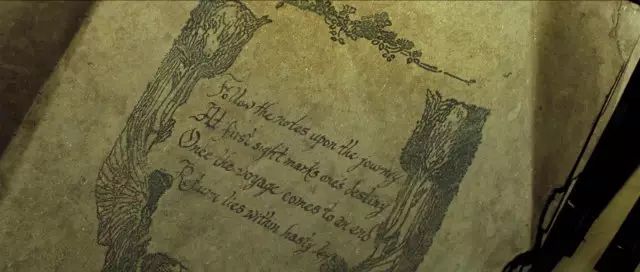 Follow the notes upon the journey
At first sight marks one's destiny
Once the voyage comes to an end
Return lies within hasty keys